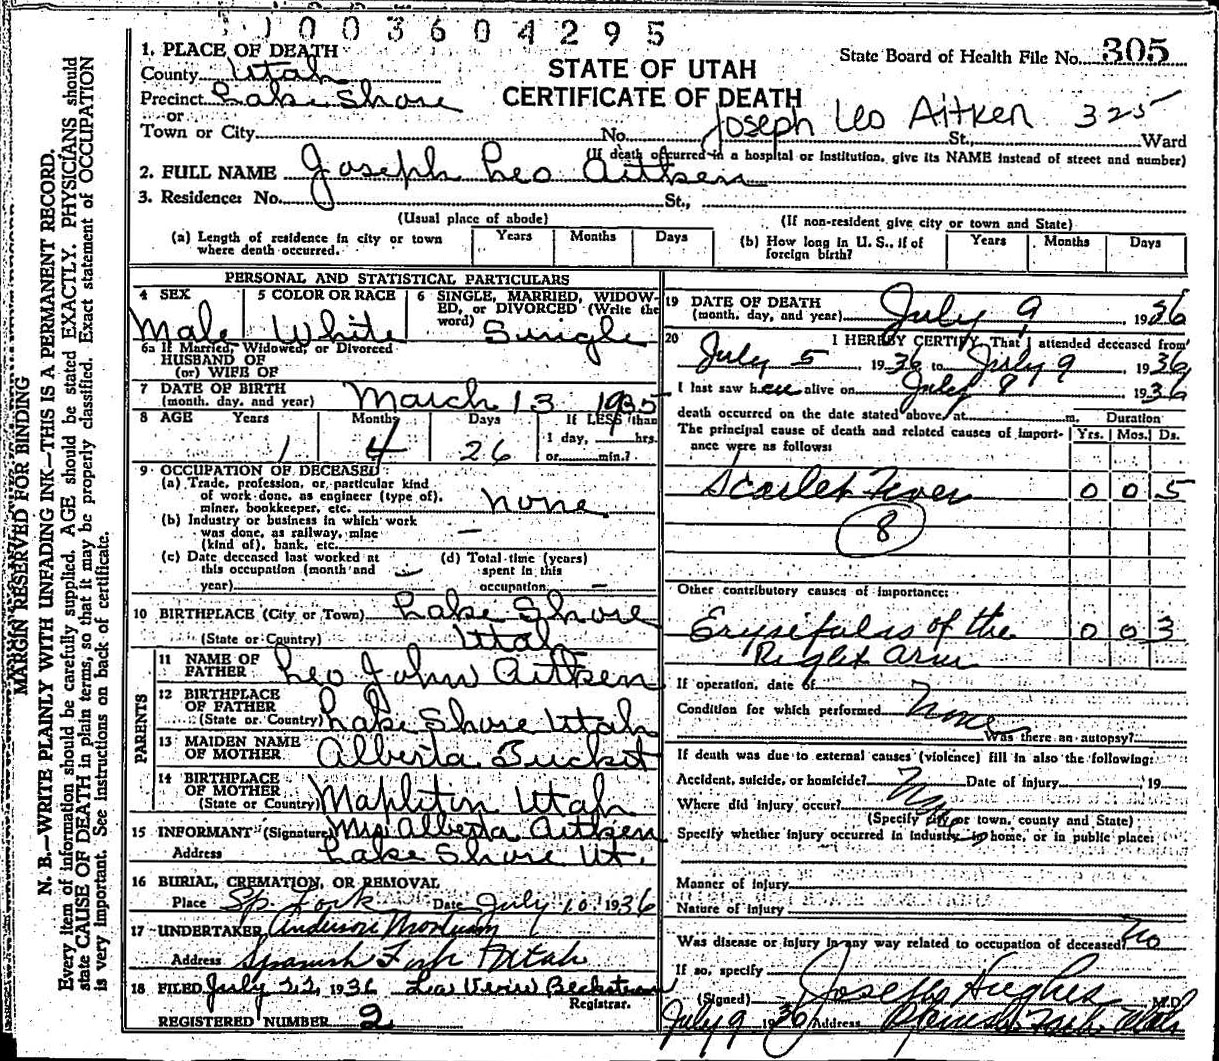 1003604295
1. PLACE OF DEATH
County Utah
Precinct Lake Shore
or
Town or City
STATE OF UTAH
CERTIFICATE OF DEATH
State Board of Health File No. 305
Joseph Leo Aitken 325
No. St., Ward
(If death occurred in a hospital or institution, give its NAME instead of street and number)
2. FULL NAME Joseph Leo Aitken
3. Residence: No. St.,
(Usual place of abode) (If non-resident give city or town and State)
(a) Length of residence in city or town where death occurred. Years Months Days
(b) How long in U. S., if of foreign birth? Years Months Days
PERSONAL AND STATISTICAL PARTICULARS
4 SEX
Male
5 COLOR OR RACE
White
6 SINGLE, MARRIED, WIDOWED, or DIVORCED (Write the word)
Single
6a If Married, Widowed, or Divorced
HUSBAND OF
(or) WIFE OF
7 DATE OF BIRTH
(month, day, and year) March 13 1935
8 AGE Years Months Days If LESS than
1 4 26 1 day, hrs.
or min.?
9 OCCUPATION OF DECEASED
(a) Trade, profession, or particular kind
of work done, as engineer (type of),
miner, bookkeeper, etc. none
(b) Industry or business in which work
was done, as railway, mine
(kind of), bank, etc. —
(c) Date deceased last worked at
this occupation (month and
year) —
(d) Total time (years)
spent in this
occupation —
10 BIRTHPLACE (City or Town) Lake Shore
(State or Country) Utah
PARENTS
11 NAME OF
FATHER Leo John Aitken
12 BIRTHPLACE
OF FATHER
(State or Country) Lake Shore Utah
13 MAIDEN NAME
OF MOTHER Alberta
14 BIRTHPLACE
OF MOTHER
(State or Country) Mapleton Utah
15 INFORMANT (Signature) Mrs Alberta Aitken
Address Lake Shore Ut.
16 BURIAL, CREMATION, OR REMOVAL
Place Sp. Fork Date July 10, 1936
17 UNDERTAKER Anderson
Address Spanish Fork Utah
18 FILED July 22, 1936 Registrar.
REGISTERED NUMBER 2
19 DATE OF DEATH
(month, day, and year) July 9, 1936
20 I HEREBY CERTIFY, That I attended deceased from
July 5 1936 to July 9 1936
I last saw h alive on July 8 1936
death occurred on the date stated above, at m.
The principal cause of death and related causes of importance were as follows:
Duration
Yrs. Mos. Ds.
Scarlet Fever 0 0 5
8
Other contributory causes of importance:
Erysipalas of the 0 0 3
Right arm
If operation, date of
Condition for which performed None
Was there an autopsy?
If death was due to external causes (violence) fill in also the following:
Accident, suicide, or homicide? No Date of Injury 19
Where did injury occur?
(Specify city or town, county and State)
Specify whether injury occurred in industry, in home, or in public place:
Manner of injury
Nature of injury
Was disease or injury in any way related to occupation of deceased? No
If so, specify
(Signed) Joseph Hughes M.D.
July 9 1936 Address Spanish Fork Utah
MARGIN RESERVED FOR BINDING
N. B.—WRITE PLAINLY WITH UNFADING INK—THIS IS A PERMANENT RECORD.
Every item of information should be carefully supplied. AGE should be stated EXACTLY. PHYSICIANS should
state CAUSE OF DEATH in plain terms, so that it may be properly classified. Exact statement of OCCUPATION
is very important. See instructions on back of certificate.